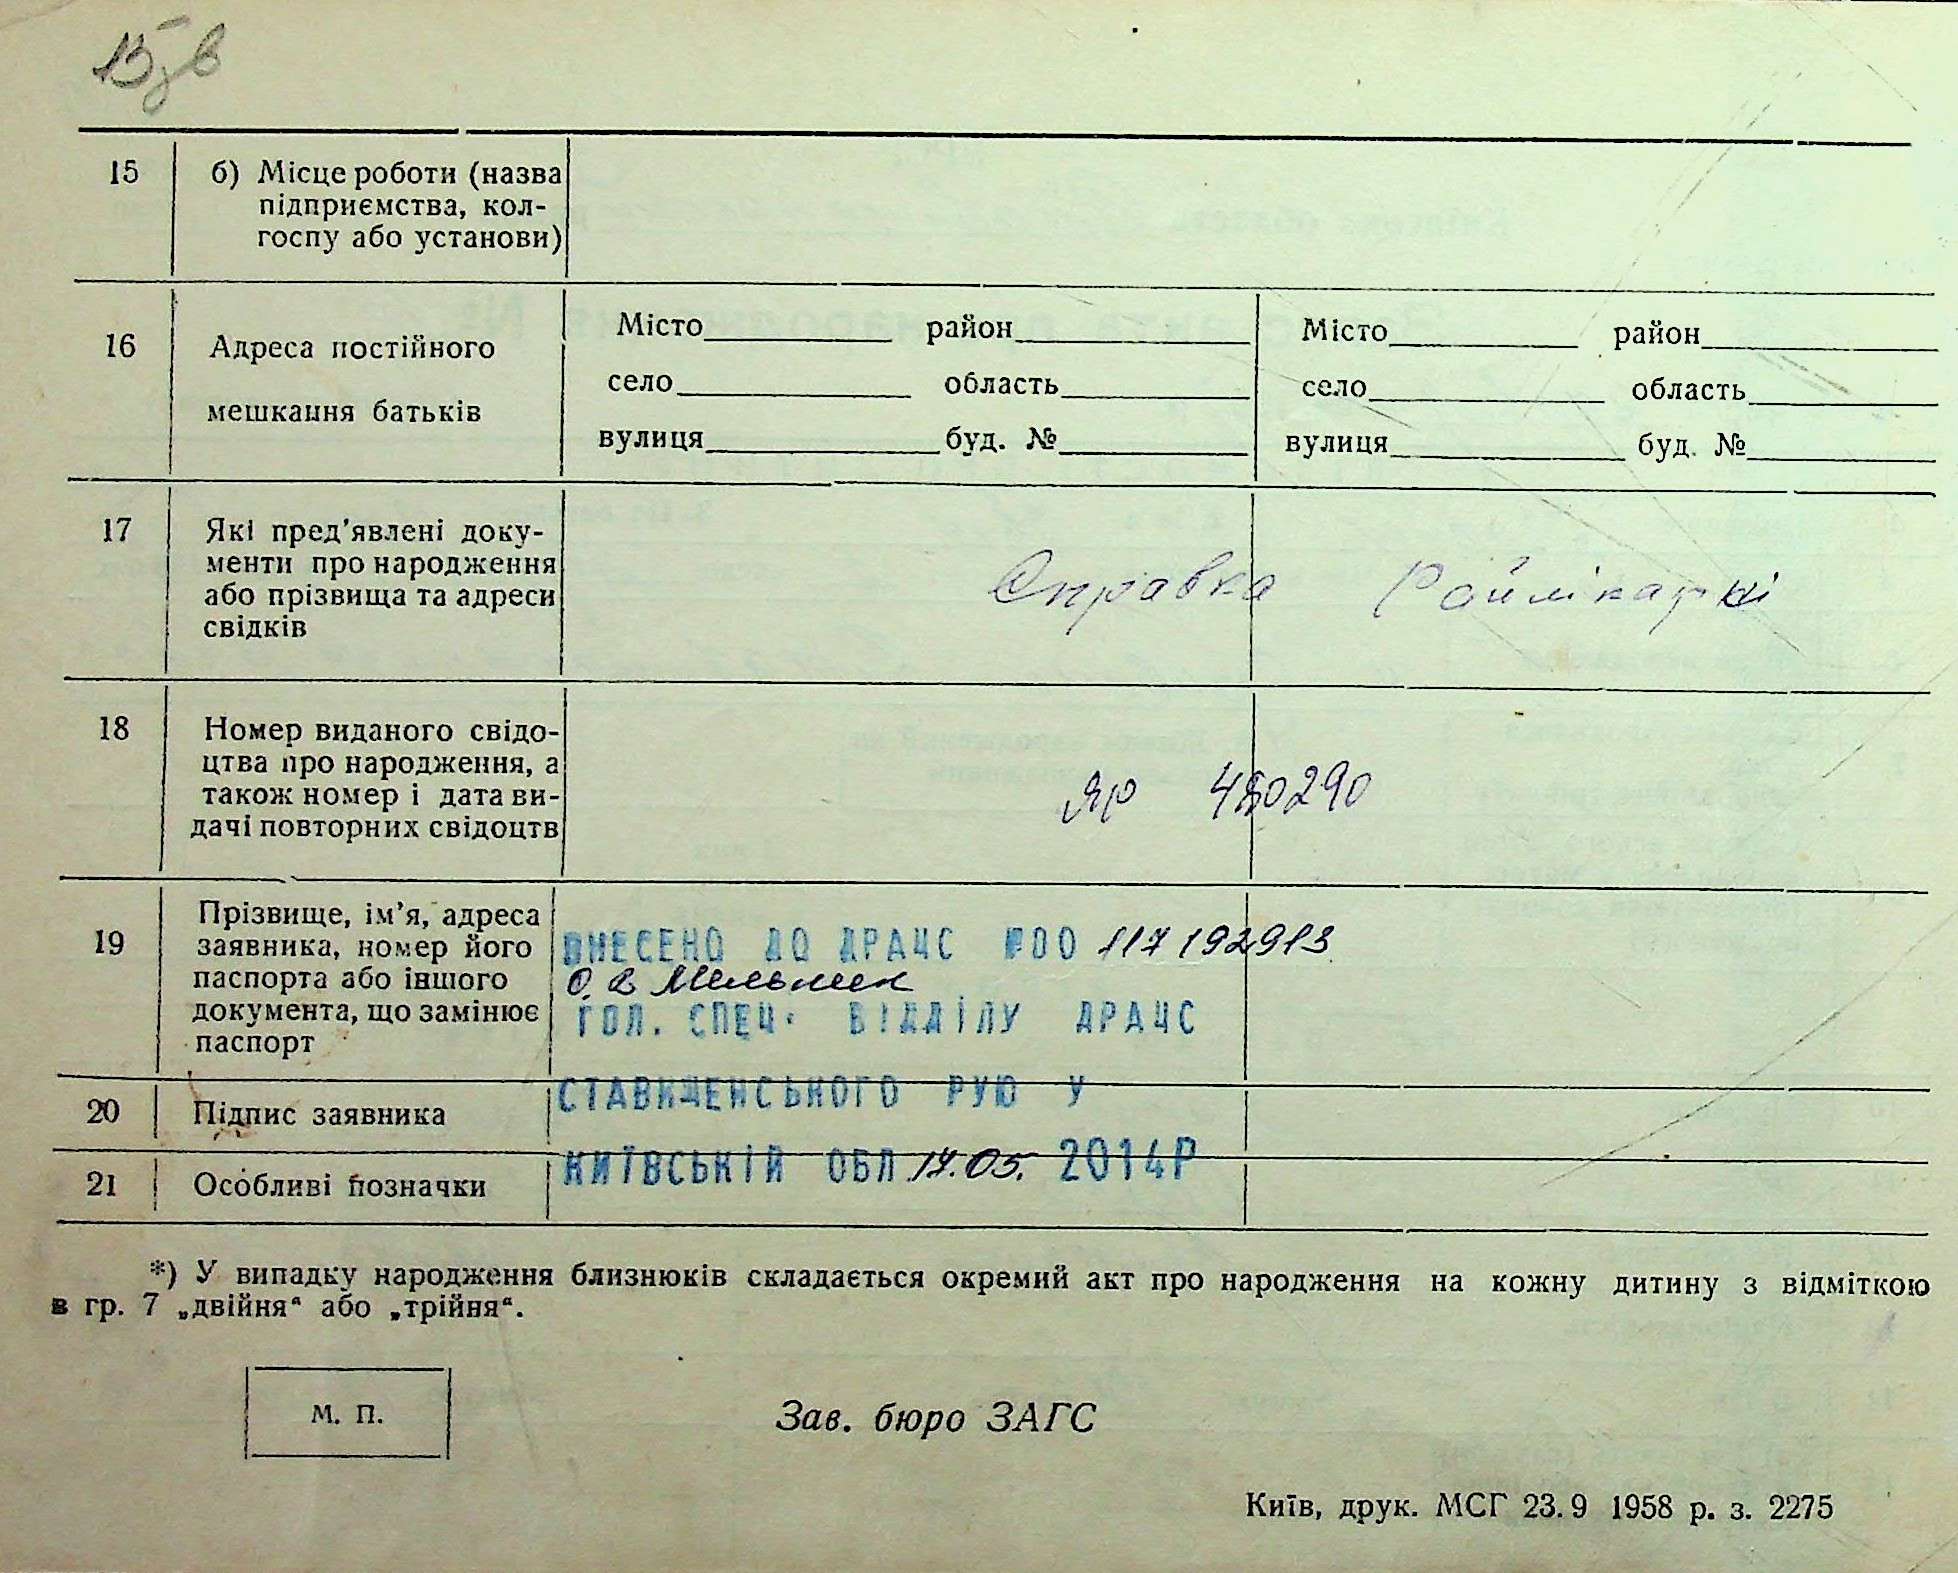 15
б) Місце роботи (назва
підприємства, кол-
госпу або установи)
16
Адреса постійного
мешкання батьків
Місто район
село область
вулиця буд. №
Місто район
село область
вулиця буд. №
17
Які пред’явлені доку-
менти про народження
або прізвища та адреси
свідків
Справка
18
Номер виданого свідо-
цтва про народження, а
також номер і дата ви-
дачі повторних свідоцтв
ЯР
19
Прізвище, ім’я, адреса
заявника, номер його
паспорта або іншого
документа, що замінює
паспорт
ВНЕСЕНО ДО ДРАЦС №00 117192913
О. В Мельник
ГОЛ. СПЕЦ. ВІДДІЛУ ДРАЦС
20
Підпис заявника
СТАВИЩЕНСЬКОГО РУЮ У
21
Особливі позначки
КИЇВСЬКІЙ ОБЛ 17.05. 2014Р
*) У випадку народження близнюків складається окремий акт про народження на кожну дитину з відміткою
в гр. 7 „двійня“ або „трійня“.
М. П.
Зав. бюро ЗАГС
Київ, друк. МСГ 23.9 1958 р. з. 2275